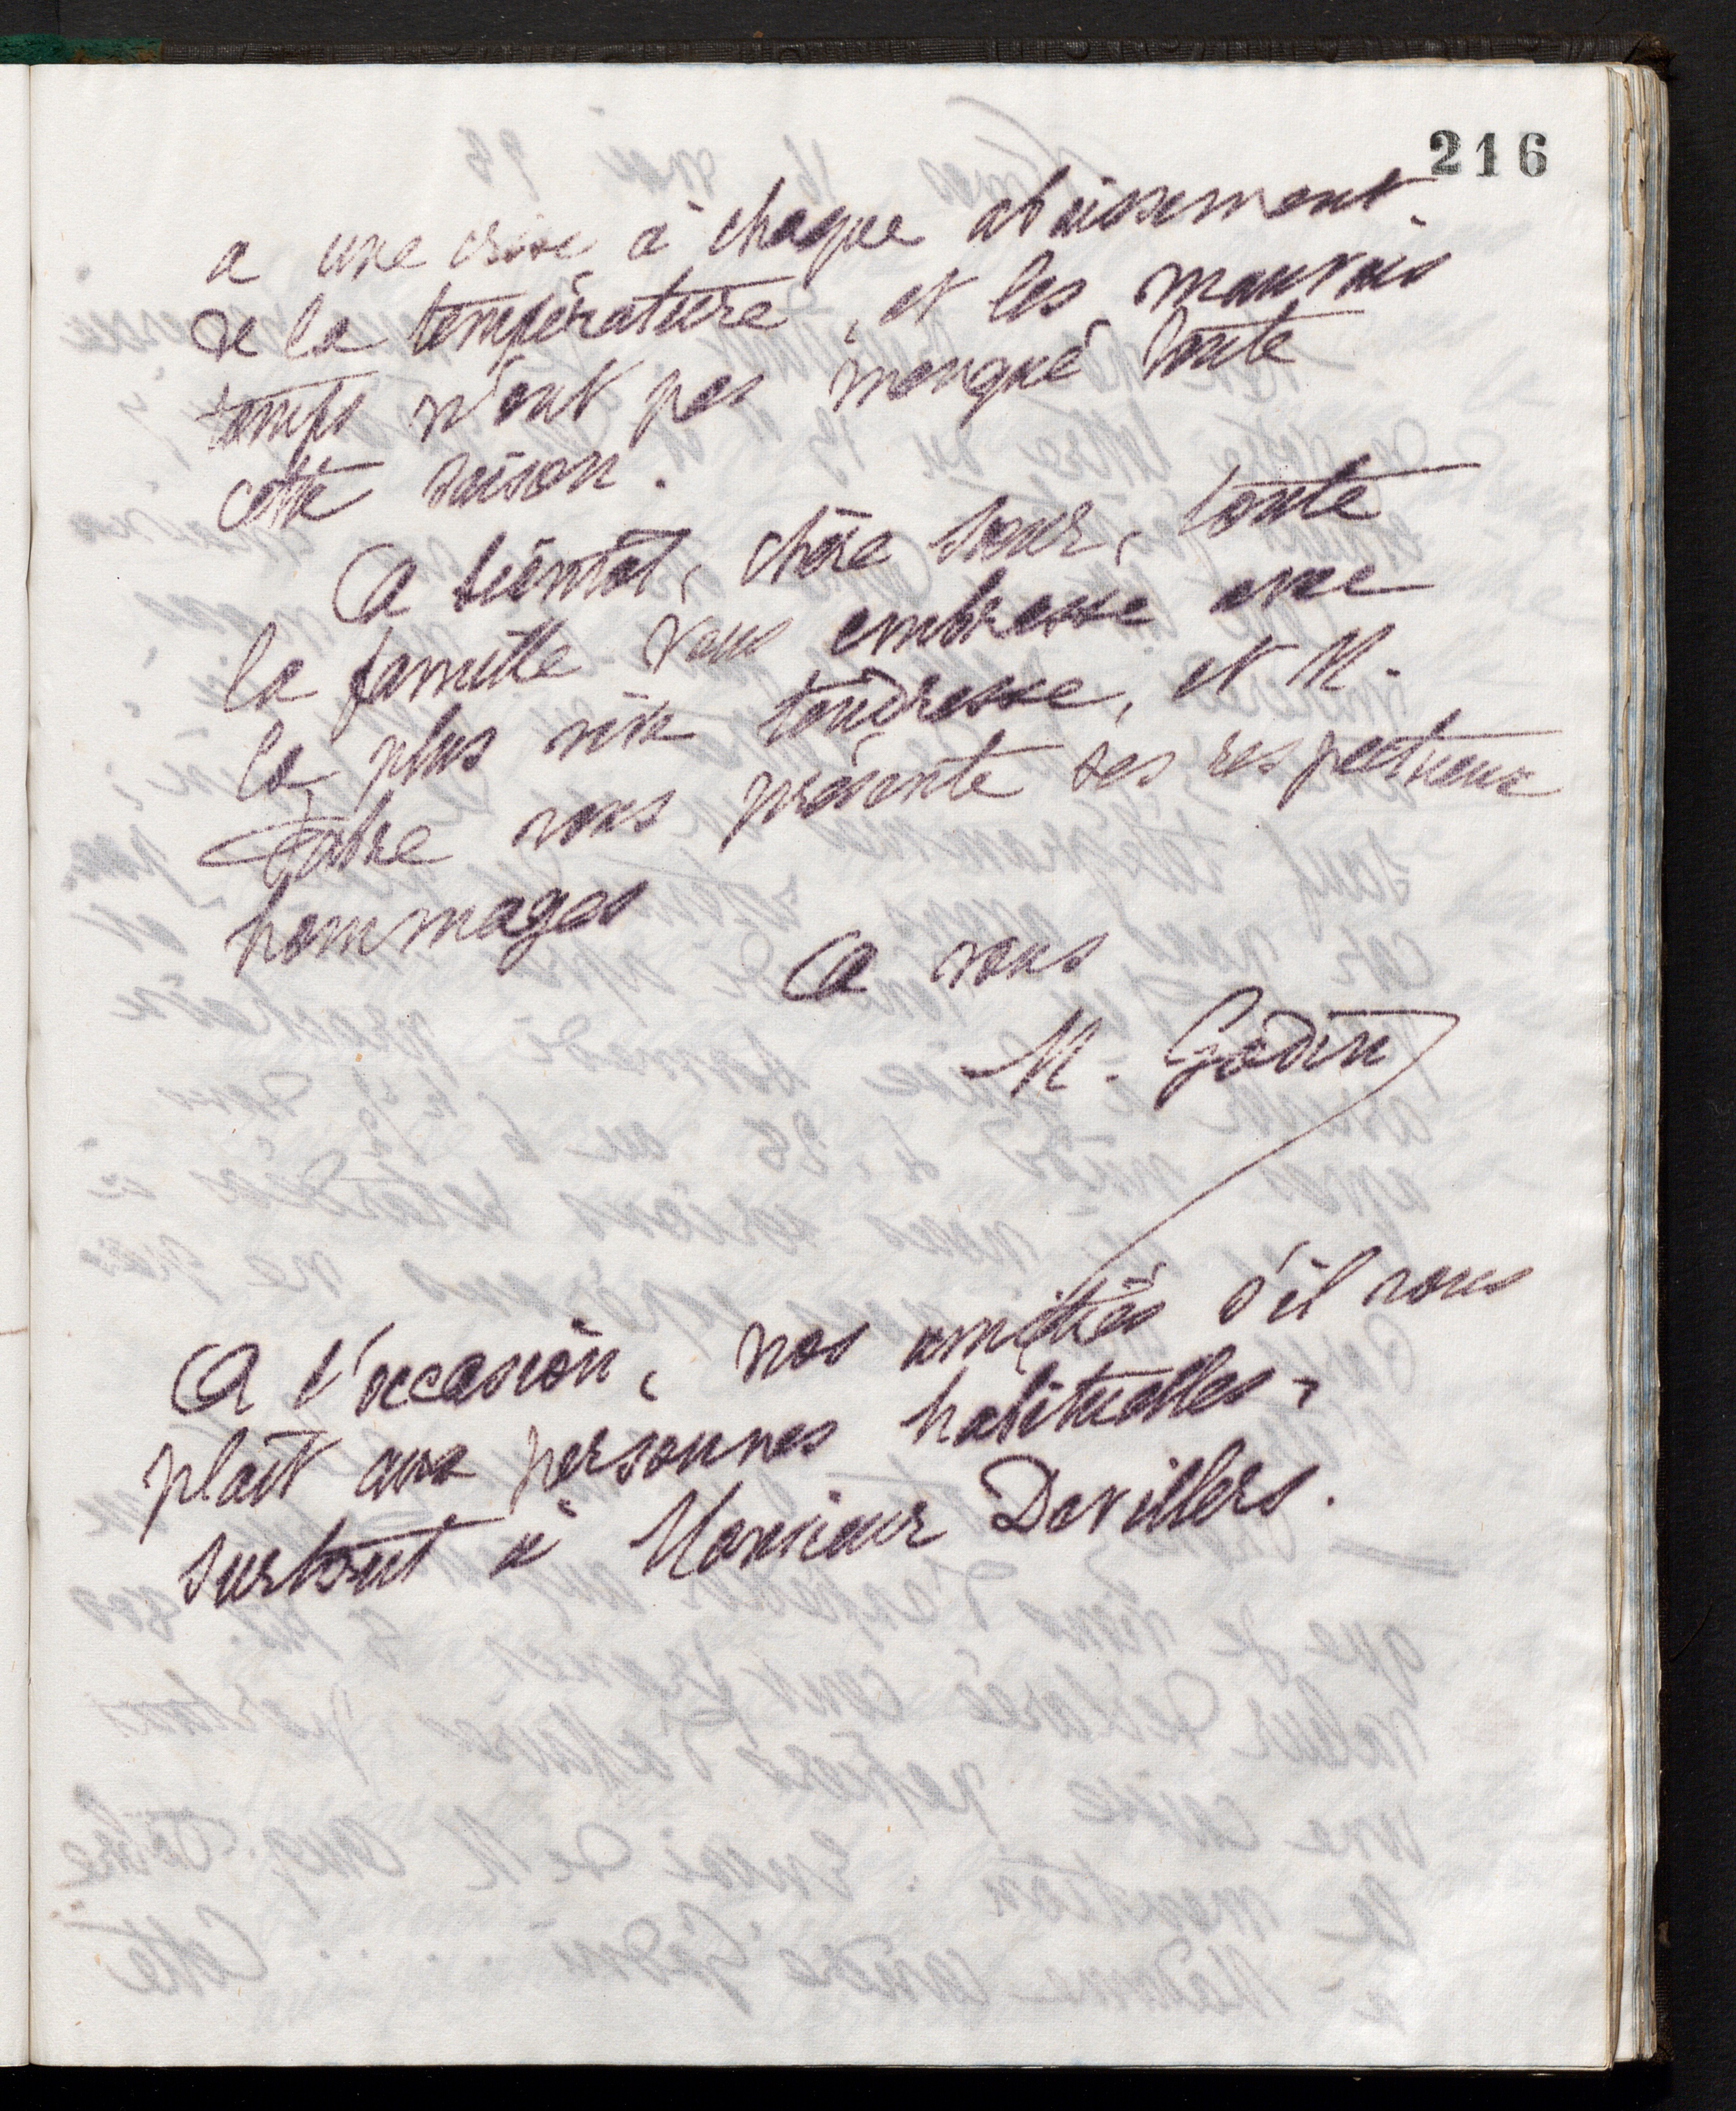 216
a une crise à chaque abaissement
de la température, et les mauvais
temps n'ont pas manqué toute
cette saison.
A bientôt, chère sœur, toute
la famille vous embrasse avec
la plus vive tendresse, et M.
Fabre vous présente ses respectueux
hommages
A vous
M. Godin
A l'occasion, nos amitiés s'il vous
plaît aux personnes habituelles,
surtout à Monsieur Devillers.